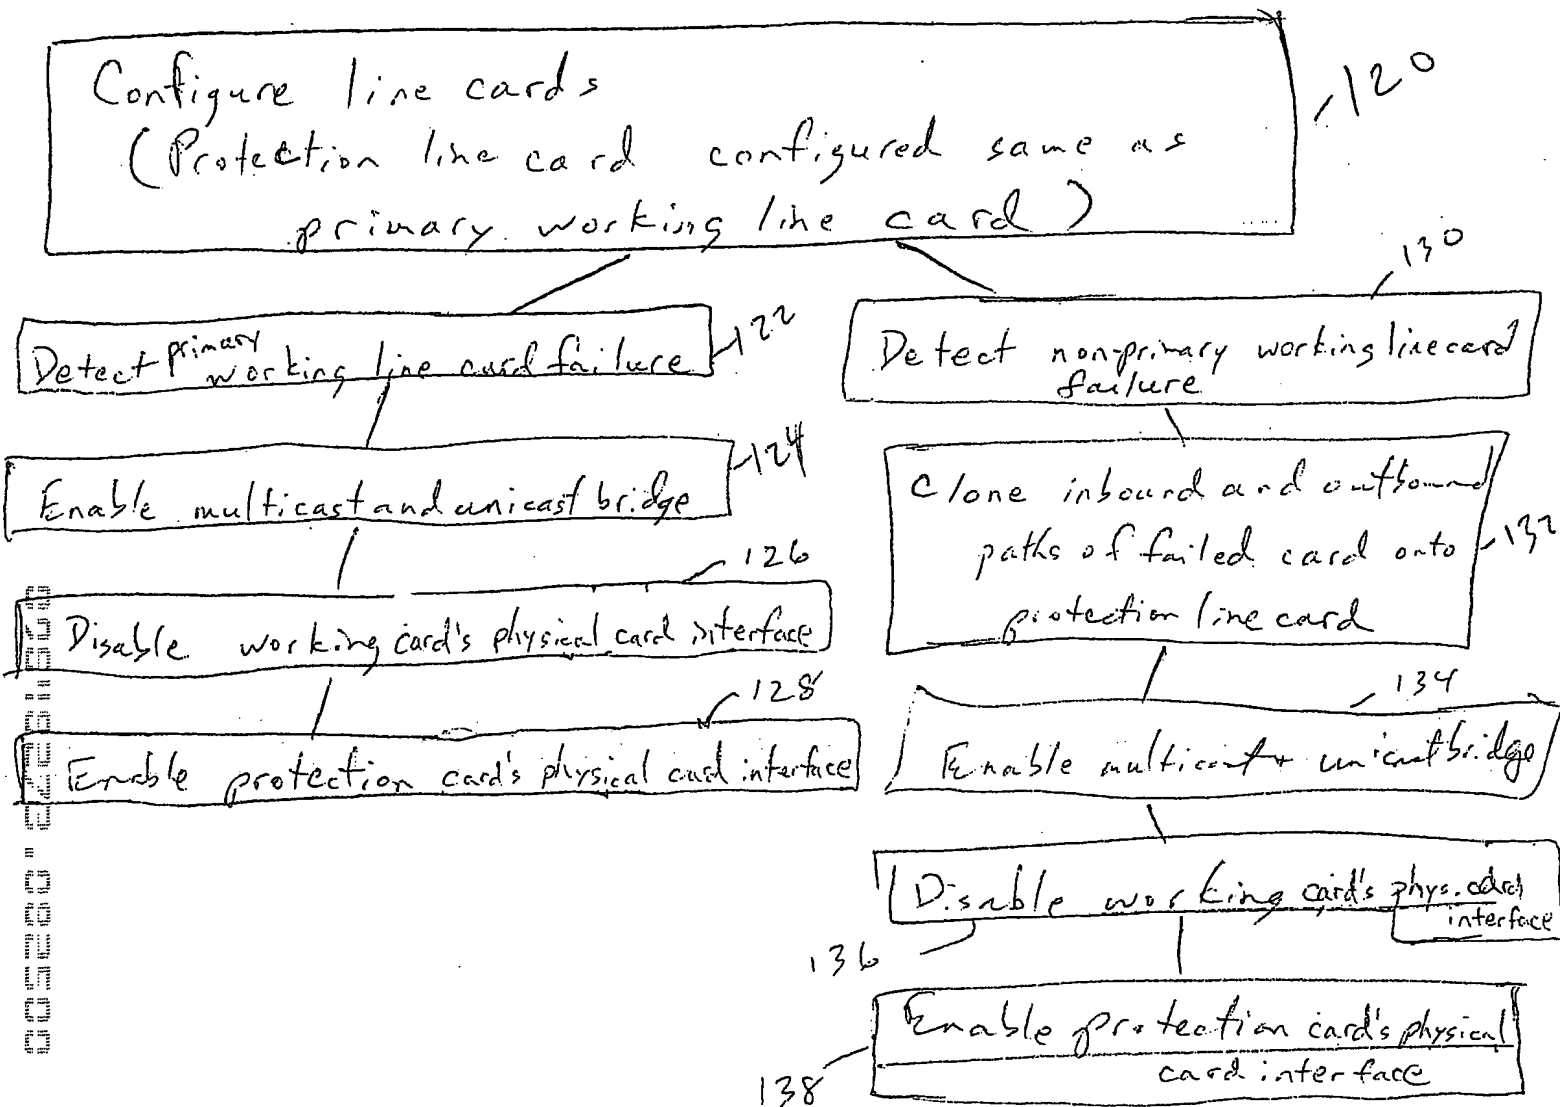 Configure line cards
(Protection line card configured same as
primary working line card)
120
Detect primary working line card failure
122
Enable multicast and unicast bridge
124
Disable working card's physical card interface
126
Enable protection card's physical card interface
128
Detect non-primary working line card
failure
130
Clone inbound and outbound
paths of failed card onto
protection line card
132
Enable multicast + unicast bridge
134
Disable working card's phys. card
interface
136
Enable protection card's physical
card interface
138